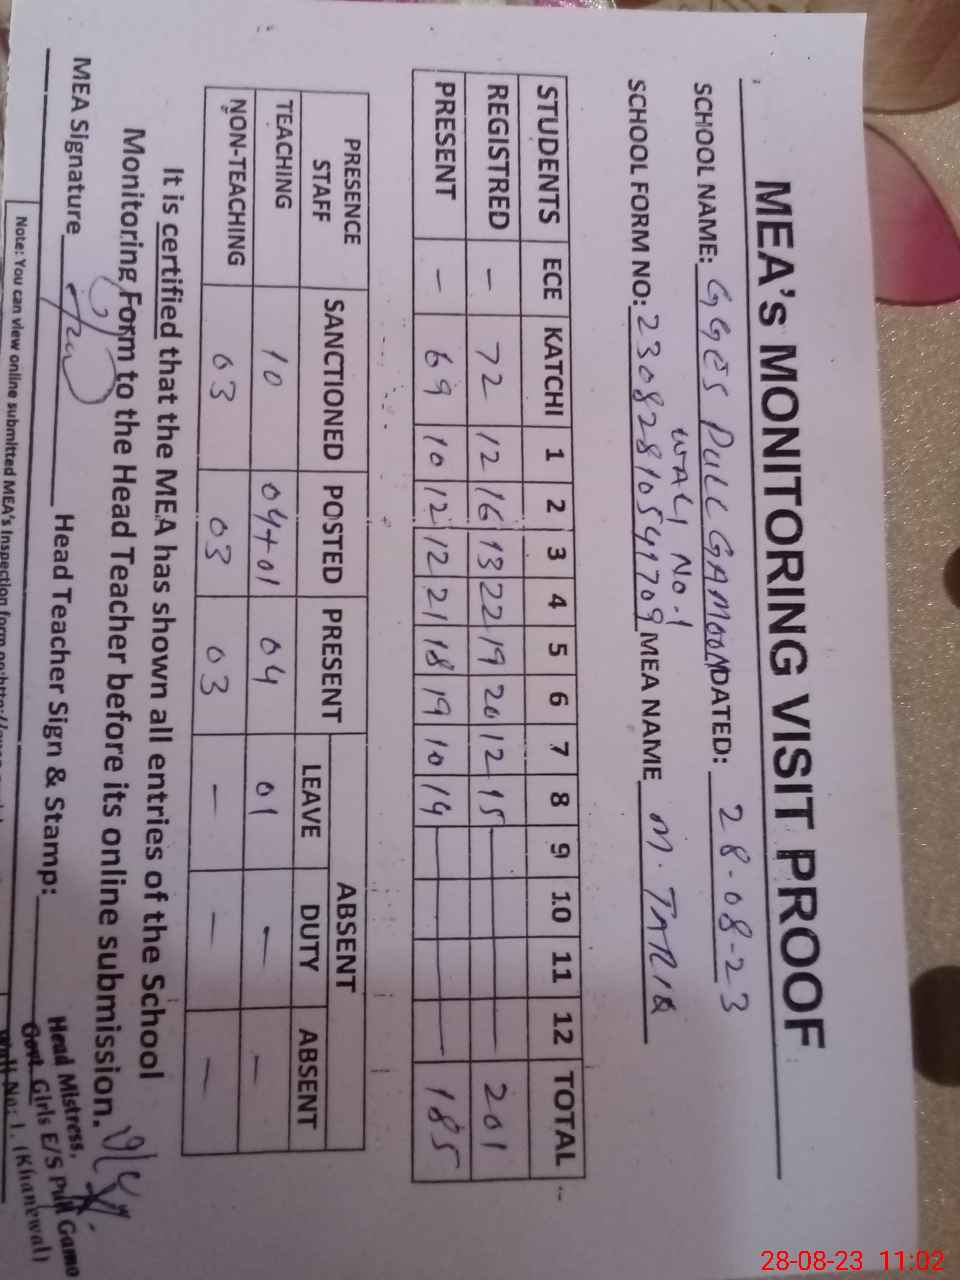 MEA's MONITORING VISIT PROOF
SCHOOL NAME: GGES PULL GAMOO DATED: 28-08-23
WALI NO.1
SCHOOL FORM NO: 23082810541709 MEA NAME M. TARIQ
STUDENTS ECE KATCHI 1 2 3 4 5 6 7 8 9 10 11 12 TOTAL
REGISTRED - 72 12 16 13 22 19 20 12 15 201
PRESENT - 69 10 12 12 21 18 19 10 14 185
PRESENCE STAFF SANCTIONED POSTED PRESENT ABSENT
LEAVE DUTY ABSENT
TEACHING 10 04+01 04 01 - -
NON-TEACHING 03 03 03 - - -
It is certified that the MEA has shown all entries of the School
Monitoring Form to the Head Teacher before its online submission.
MEA Signature Head Teacher Sign & Stamp:
Head Mistress,
Govt. Girls E/S Pull Gamo
Wali No: 1. (Khanewal)
Note: You can view online submitted MEA's Inspection form on:
28-08-23 11:02